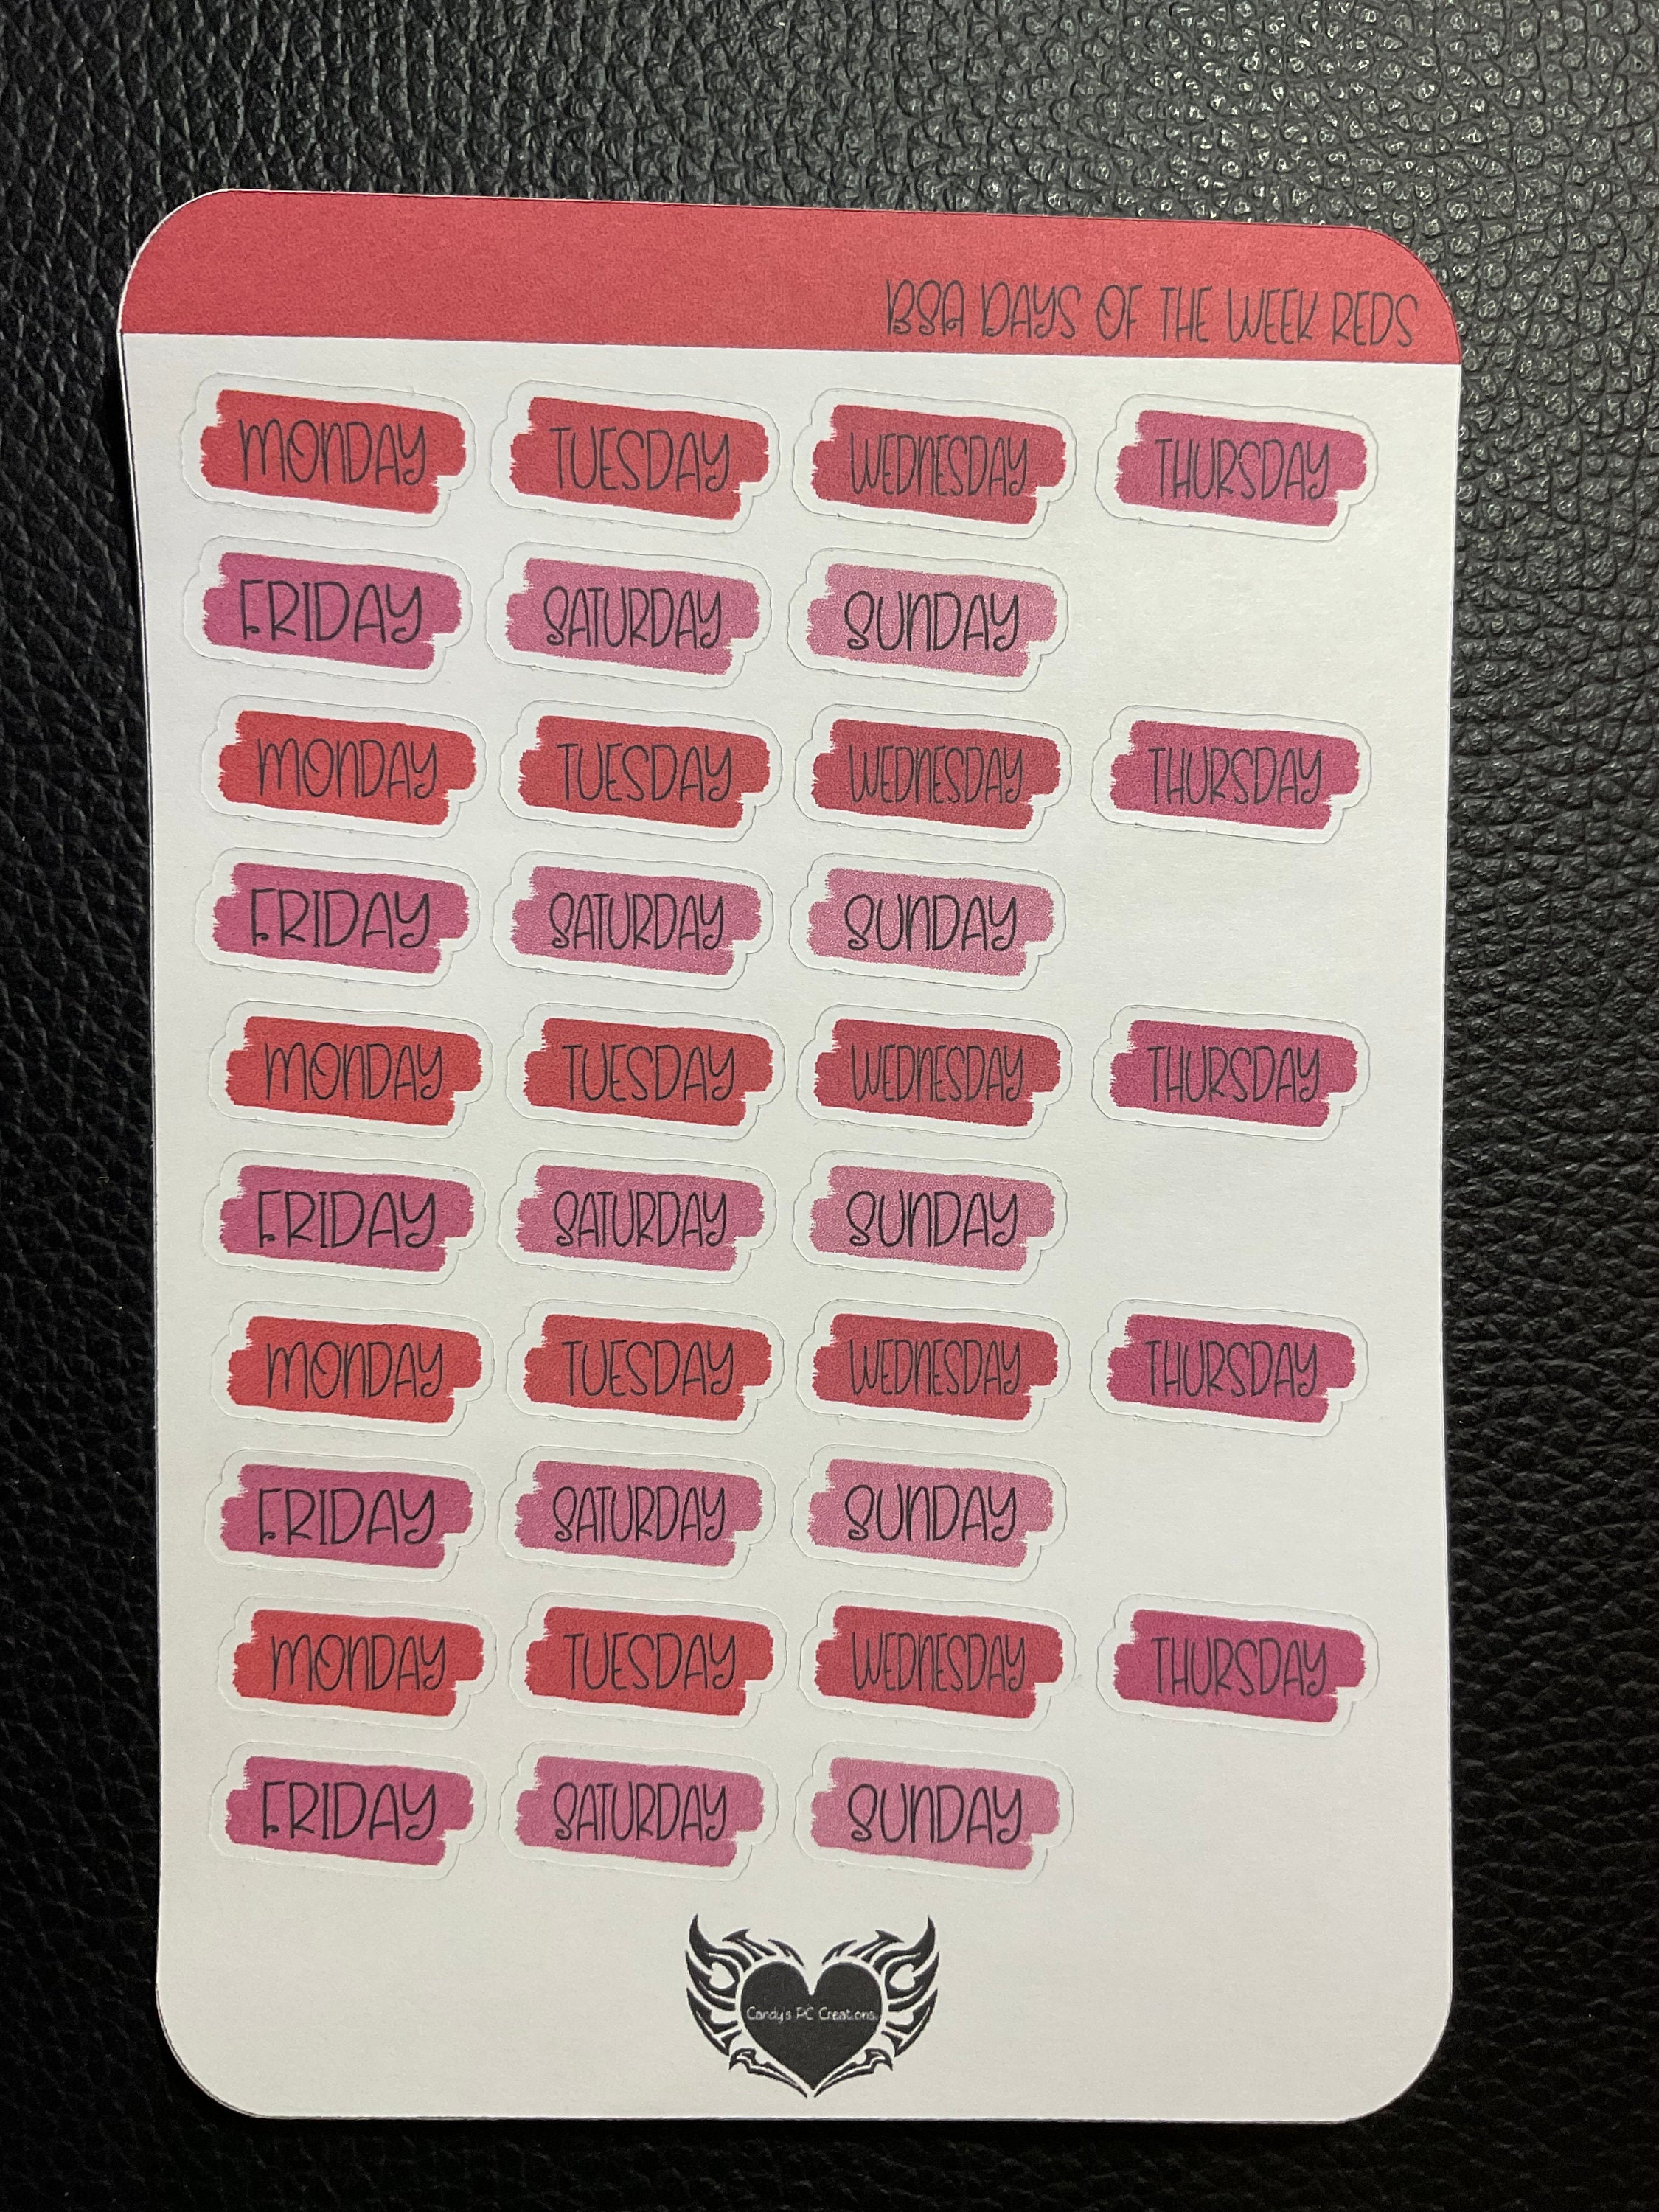 BSA DAYS OF THE WEEK REDS
MONDAY TUESDAY WEDNESDAY THURSDAY
FRIDAY SATURDAY SUNDAY
MONDAY TUESDAY WEDNESDAY THURSDAY
FRIDAY SATURDAY SUNDAY
MONDAY TUESDAY WEDNESDAY THURSDAY
FRIDAY SATURDAY SUNDAY
MONDAY TUESDAY WEDNESDAY THURSDAY
FRIDAY SATURDAY SUNDAY
MONDAY TUESDAY WEDNESDAY THURSDAY
FRIDAY SATURDAY SUNDAY
Candy's PC Creations